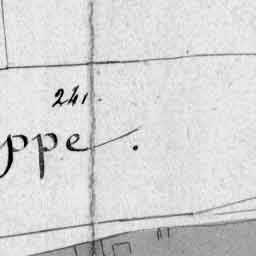 241.
ppe.